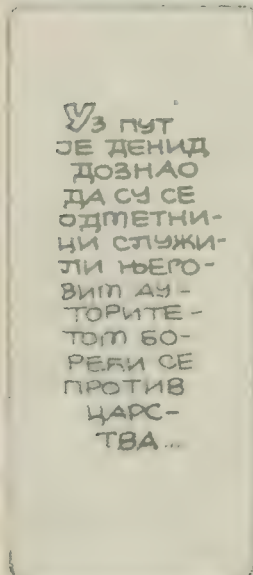 Уз пут
је Денид
дознао
да су се
одметни-
ци служи-
ли њего-
вим ау-
торите-
том бо-
рећи се
против
царс-
тва...